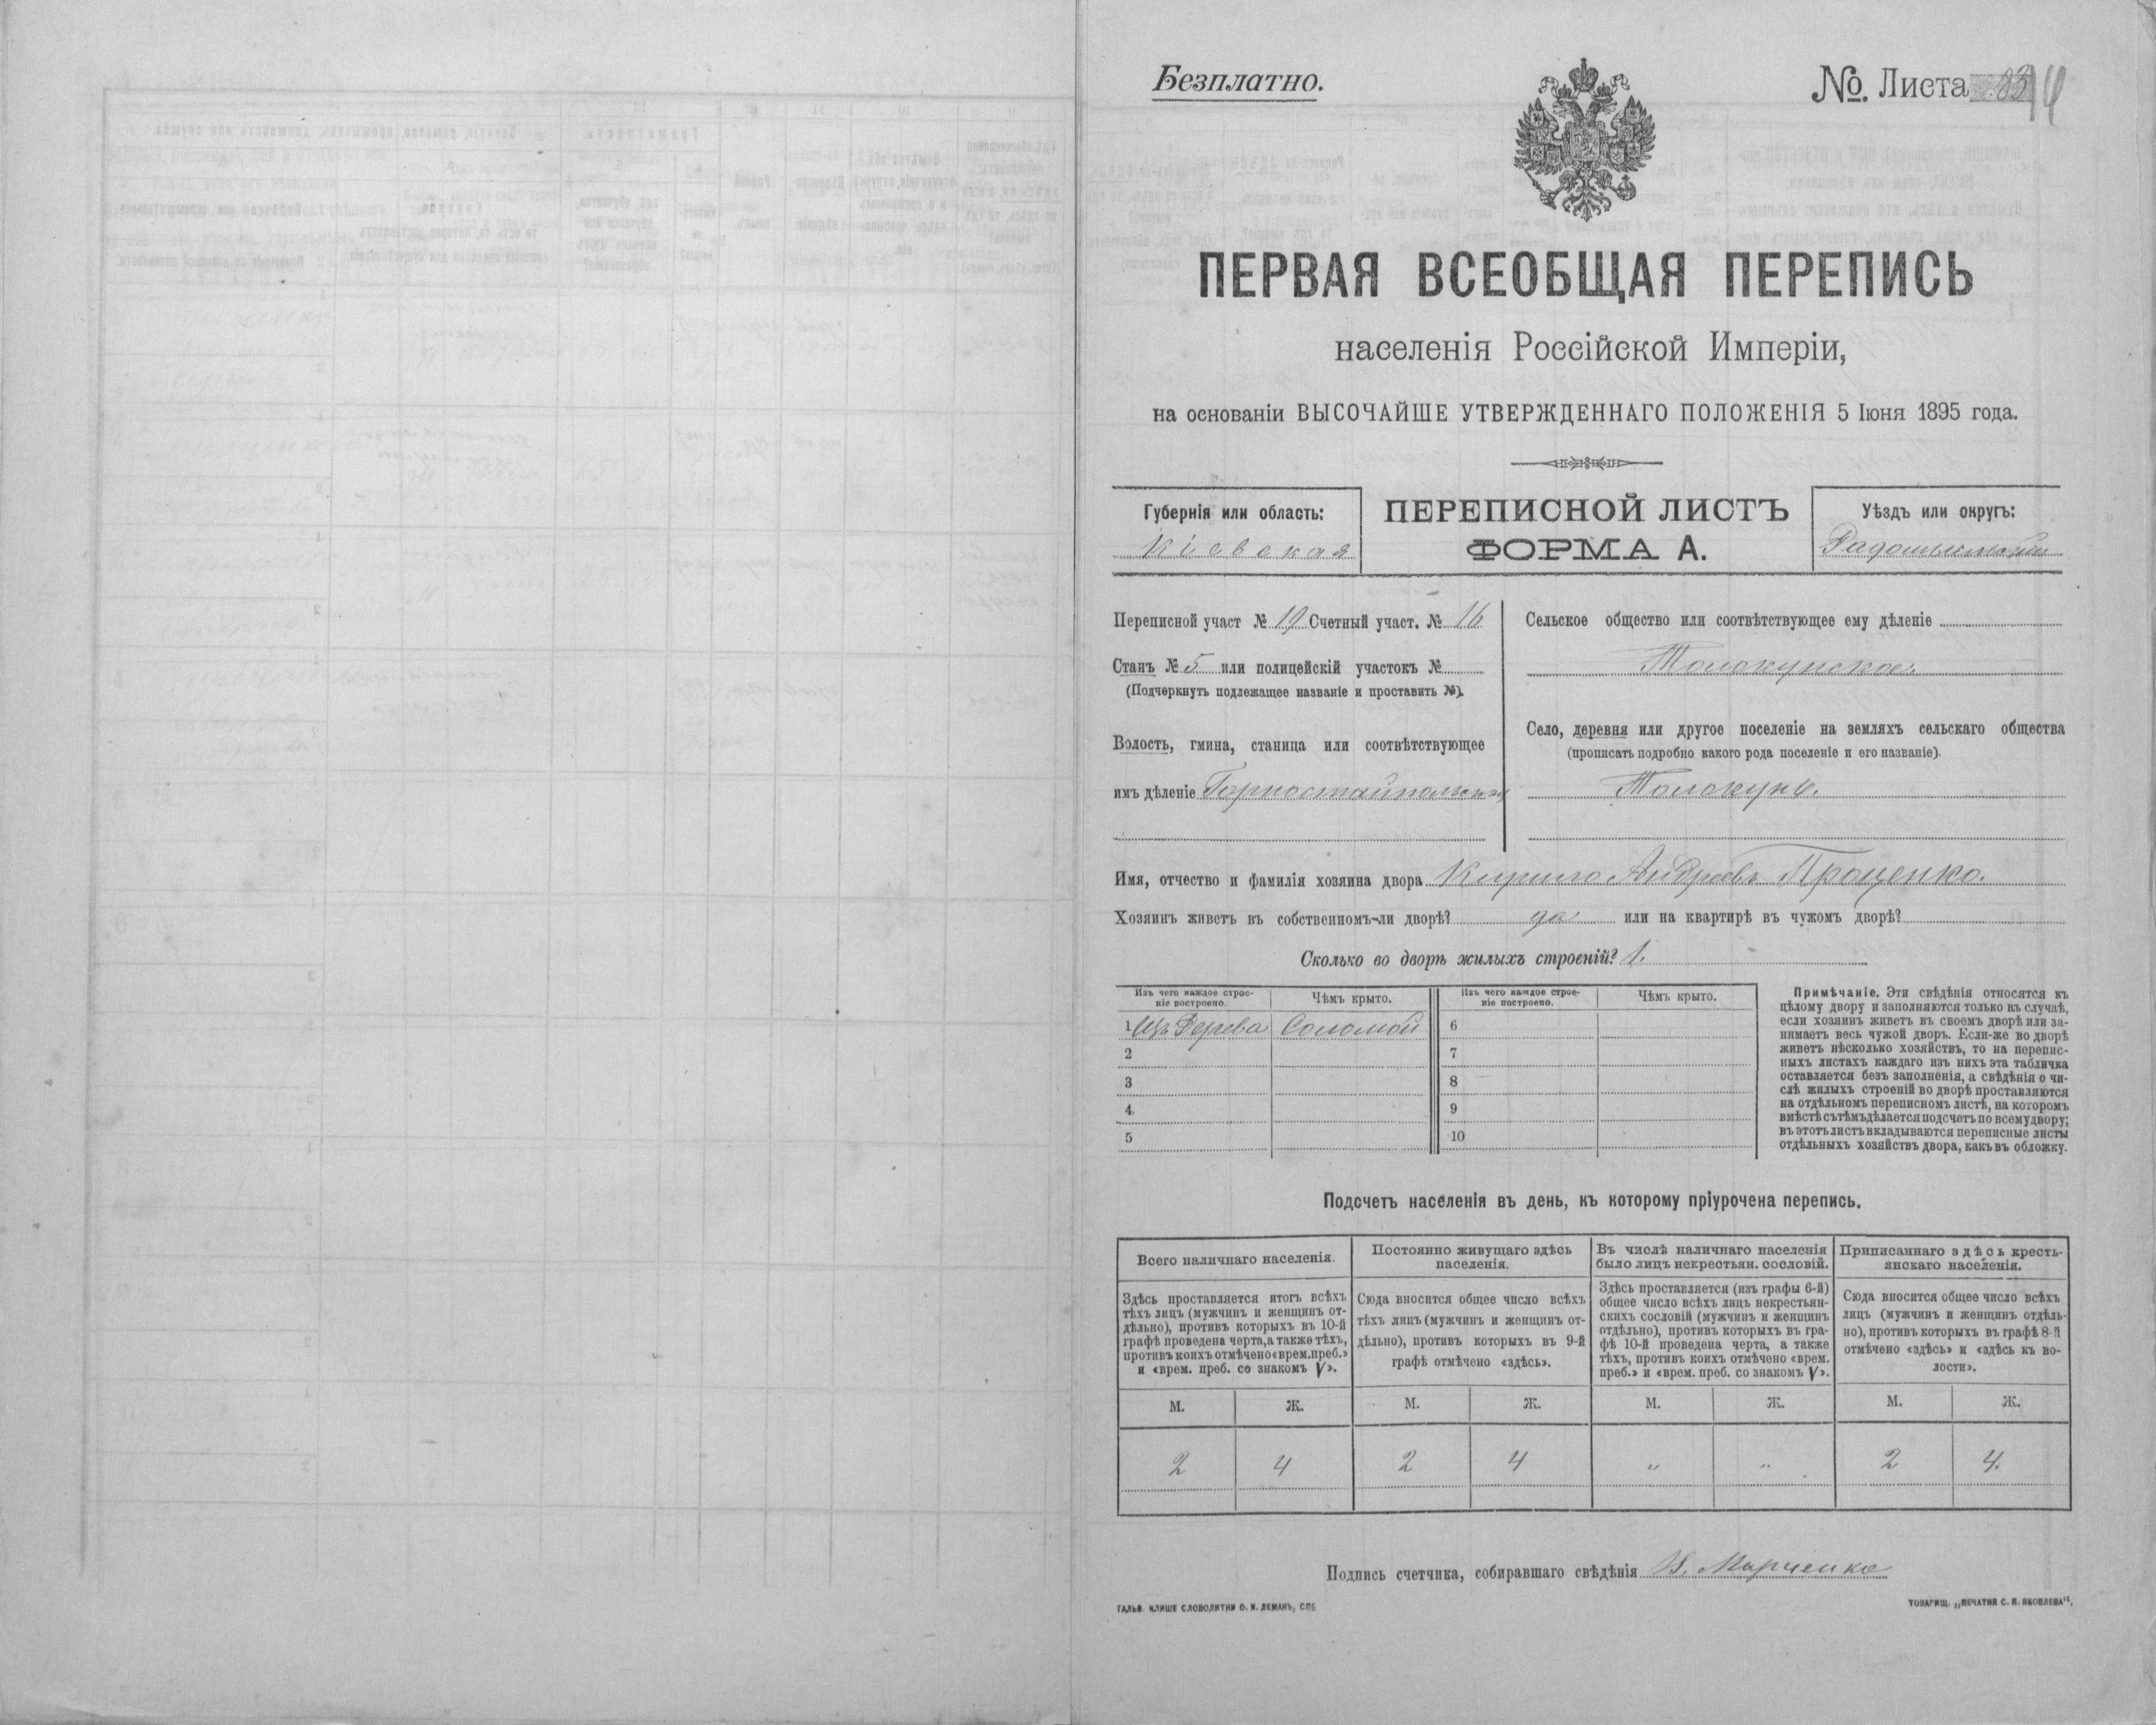 Безплатно.
№ Листа 83
ПЕРВАЯ ВСЕОБЩАЯ ПЕРЕПИСЬ
населенія Россійской Имперіи,
на основаніи ВЫСОЧАЙШЕ УТВЕРЖДЕННАГО ПОЛОЖЕНІЯ 5 Іюня 1895 года.
Губернія или область:
Кіевская
ПЕРЕПИСНОЙ ЛИСТЪ
ФОРМА А.
Уѣздъ или округъ:
Радомысльскій
Переписной участ № 19 Счетный участ. № 16
Станъ № 5 или полицейскій участокъ №
(Подчеркнуть подлежащее названіе и проставить №).
Волость, гмина, станица или соотвѣтствующее
имъ дѣленіе Горностайпольская
Сельское общество или соотвѣтствующее ему дѣленіе
Толокунское
Село, деревня или другое поселеніе на земляхъ сельскаго общества
(прописать подробно какого рода поселеніе и его названіе).
Толокунь.
Имя, отчество и фамилія хозяина двора Кирило Андреевъ Проценко.
Хозяинъ живетъ въ собственномъ-ли дворѣ? да или на квартирѣ въ чужомъ дворѣ?
Сколько во дворѣ жилыхъ строеній? 1.
Изъ чего каждое строе-
ніе построено.
Чѣмъ крыто.
Изъ чего каждое строе-
ніе построено.
Чѣмъ крыто.
1 Изъ Дерева Соломой 6
2 7
3 8
4 9
5 10
Примѣчаніе. Эти свѣдѣнія относятся къ
цѣлому двору и заполняются только въ случаѣ,
если хозяинъ живетъ въ своемъ дворѣ или за-
нимаетъ весь чужой дворъ. Если-же во дворѣ
живетъ нѣсколько хозяйствъ, то на перепис-
ныхъ листахъ каждаго изъ нихъ эта табличка
оставляется безъ заполненія, а свѣдѣнія о чи-
слѣ жилыхъ строеній во дворѣ проставляются
на отдѣльномъ переписномъ листѣ, на которомъ
вмѣстѣ съ тѣмъ дѣлается подсчетъ по всему двору;
въ этотъ листъ вкладываются переписные листы
отдѣльныхъ хозяйствъ двора, какъ въ обложку.
Подсчетъ населенія въ день, къ которому пріурочена перепись.
Всего наличнаго населенія.
Здѣсь проставляется итогъ всѣхъ
тѣхъ лицъ (мужчинъ и женщинъ от-
дѣльно), противъ которыхъ въ 10-й
графѣ проведена черта, а также тѣхъ,
противъ коихъ отмѣчено «врем. преб.»
и «врем. преб. со знакомъ V».
Постоянно живущаго здѣсь
населенія.
Сюда вносится общее число всѣхъ
тѣхъ лицъ (мужчинъ и женщинъ от-
дѣльно), противъ которыхъ въ 9-й
графѣ отмѣчено «здѣсь».
Въ числѣ наличнаго населенія
было лицъ некрестьян. сословій.
Здѣсь проставляется (изъ графы 6-й)
общее число всѣхъ лицъ некрестьян-
скихъ сословій (мужчинъ и женщинъ
отдѣльно), противъ которыхъ въ гра-
фѣ 10-й проведена черта, а также
тѣхъ, противъ коихъ отмѣчено «врем.
преб.» и «врем. преб. со знакомъ V».
Приписаннаго здѣсь кресть-
янскаго населенія.
Сюда вносится общее число всѣхъ
лицъ (мужчинъ и женщинъ отдѣль-
но), противъ которыхъ въ графѣ 8-й
отмѣчено «здѣсь» и «здѣсь къ во-
лости».
М. Ж. М. Ж. М. Ж. М. Ж.
2 4 2 4 " " 2 4.
Подпись счетчика, собиравшаго свѣдѣнія Марченко
ГАЛЬВ. КЛИШЕ СЛОВОЛИТНИ О. И. ЛЕМАНЪ, СПБ
ТОВАРИЩ. „ПЕЧАТНЯ С. П. ЯКОВЛЕВА".